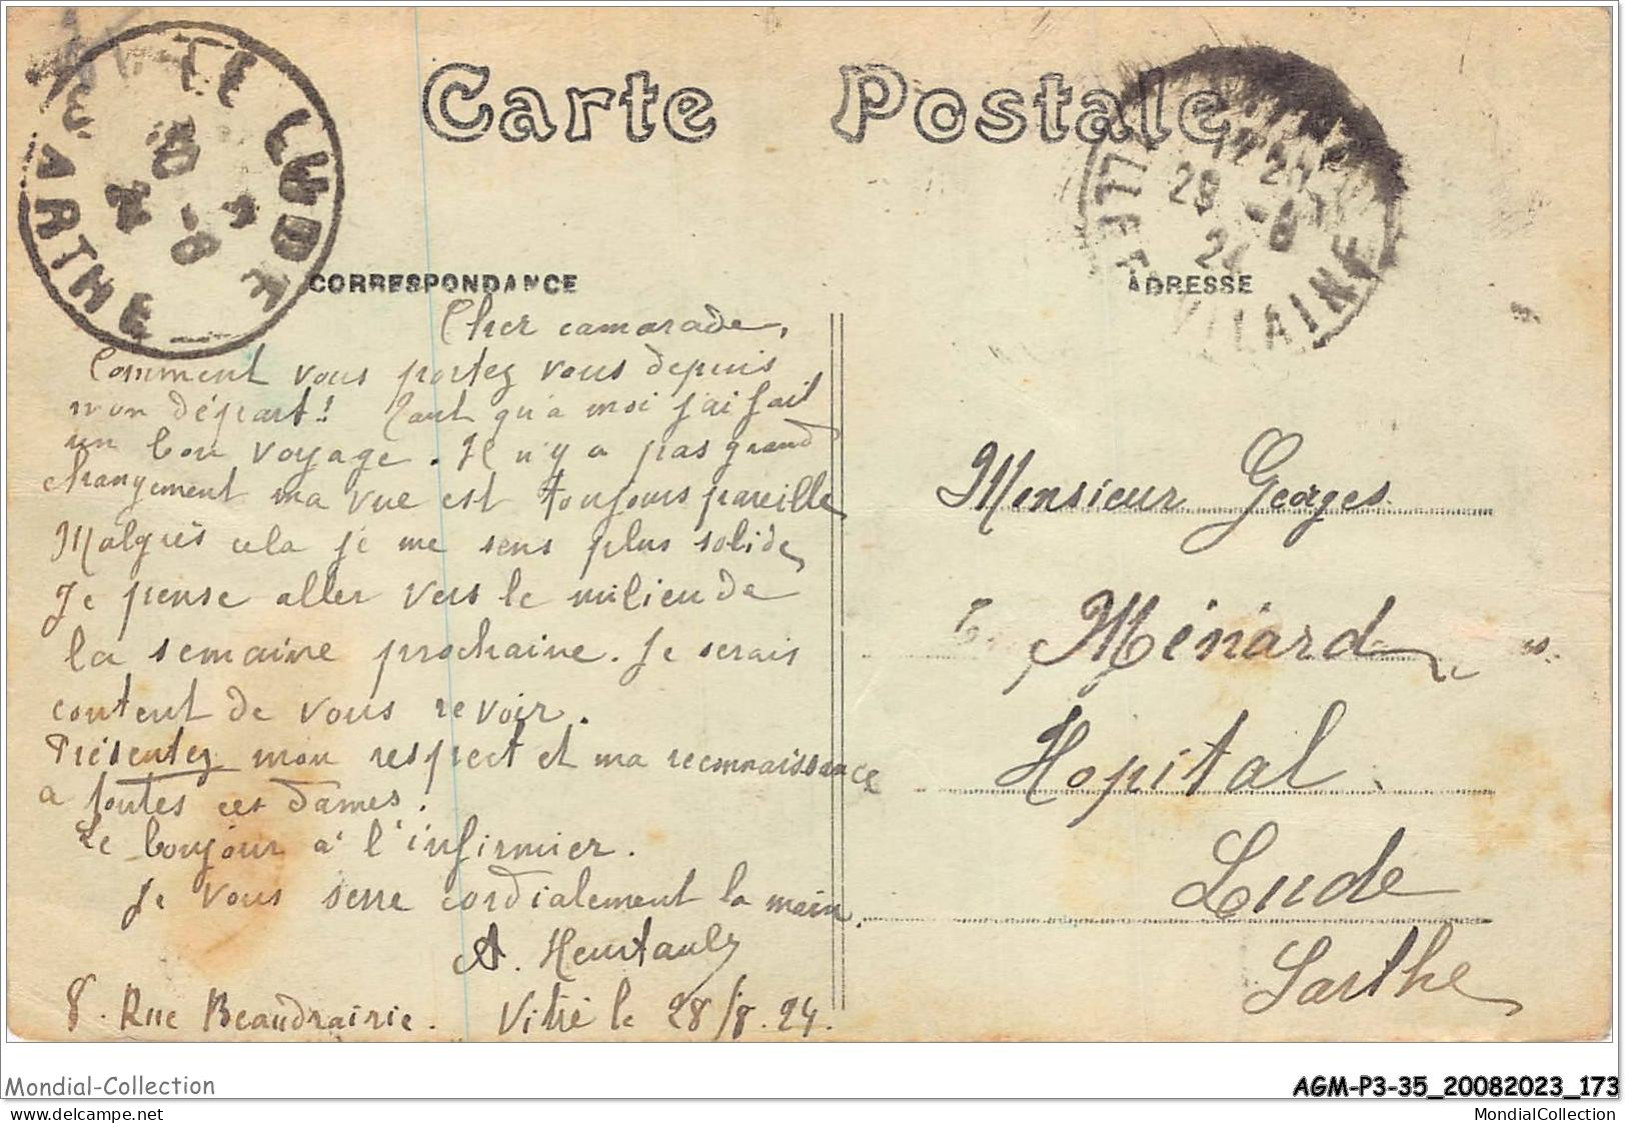 Carte Postale
LE LUDE
SARTHE
28 -8 24
ILLE-ET
VILAINE
28 -8 24
CORRESPONDANCE
ADRESSE
Cher camarade,
Comment vous portez vous depuis
mon départ! Tant qu'à moi j'ai fait
un bon voyage. Il n'y a pas grand
changement ma vue est toujours pareille
Malgrés cela je me sens plus solide,
Je pense aller vers le milieu de
la semaine prochaine. Je serais
content de vous revoir.
Présentez mon respect et ma reconnaissance
a toutes ces dames.
Le bonjour à l'infirmier.
Je vous serre cordialement la main.
A. Heurtault
8. Rue Beaudrairie. Vitré le 28/8.24.
Monsieur Georges
Ménard
Hopital
Lude
Sarthe
Mondial-Collection
AGM-P3-35_20082023_173
www.delcampe.net
MondialCollection